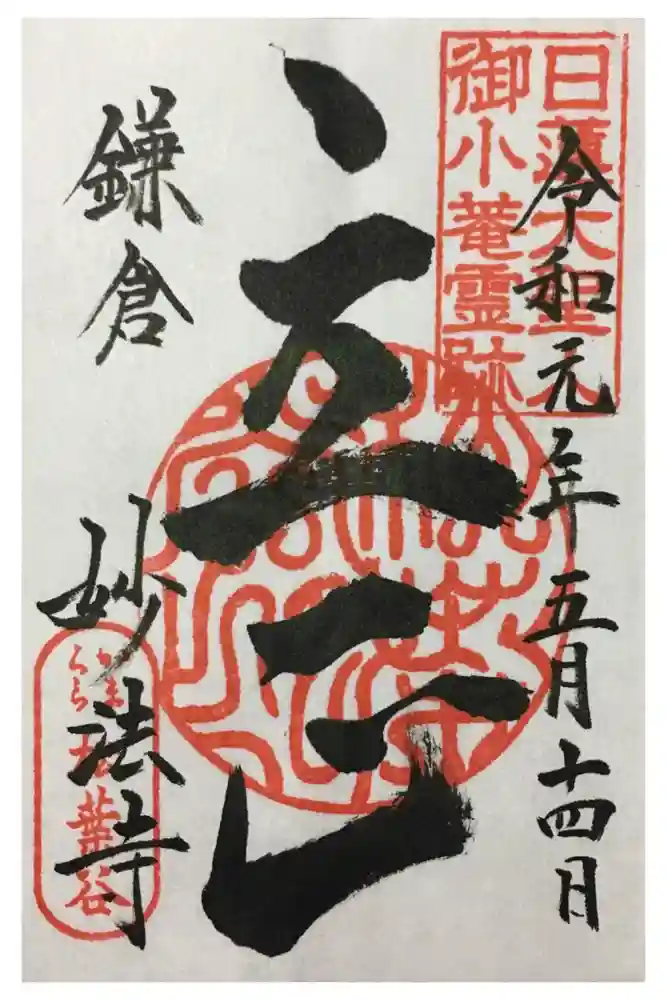 日蓮大聖人
御小菴霊跡
令和元年五月十四日
立正
鎌倉 妙法寺
かまくら
松葉谷